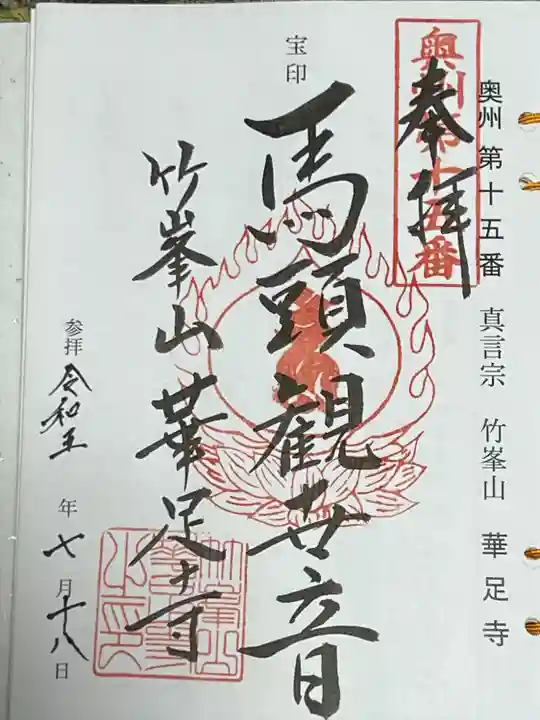 奥州 第十五番 真言宗 竹峯山 華足寺
奥州第十五番
奉拝
宝印
馬頭観世音
竹峯山 華足寺
参拝 令和五年 七月十八日